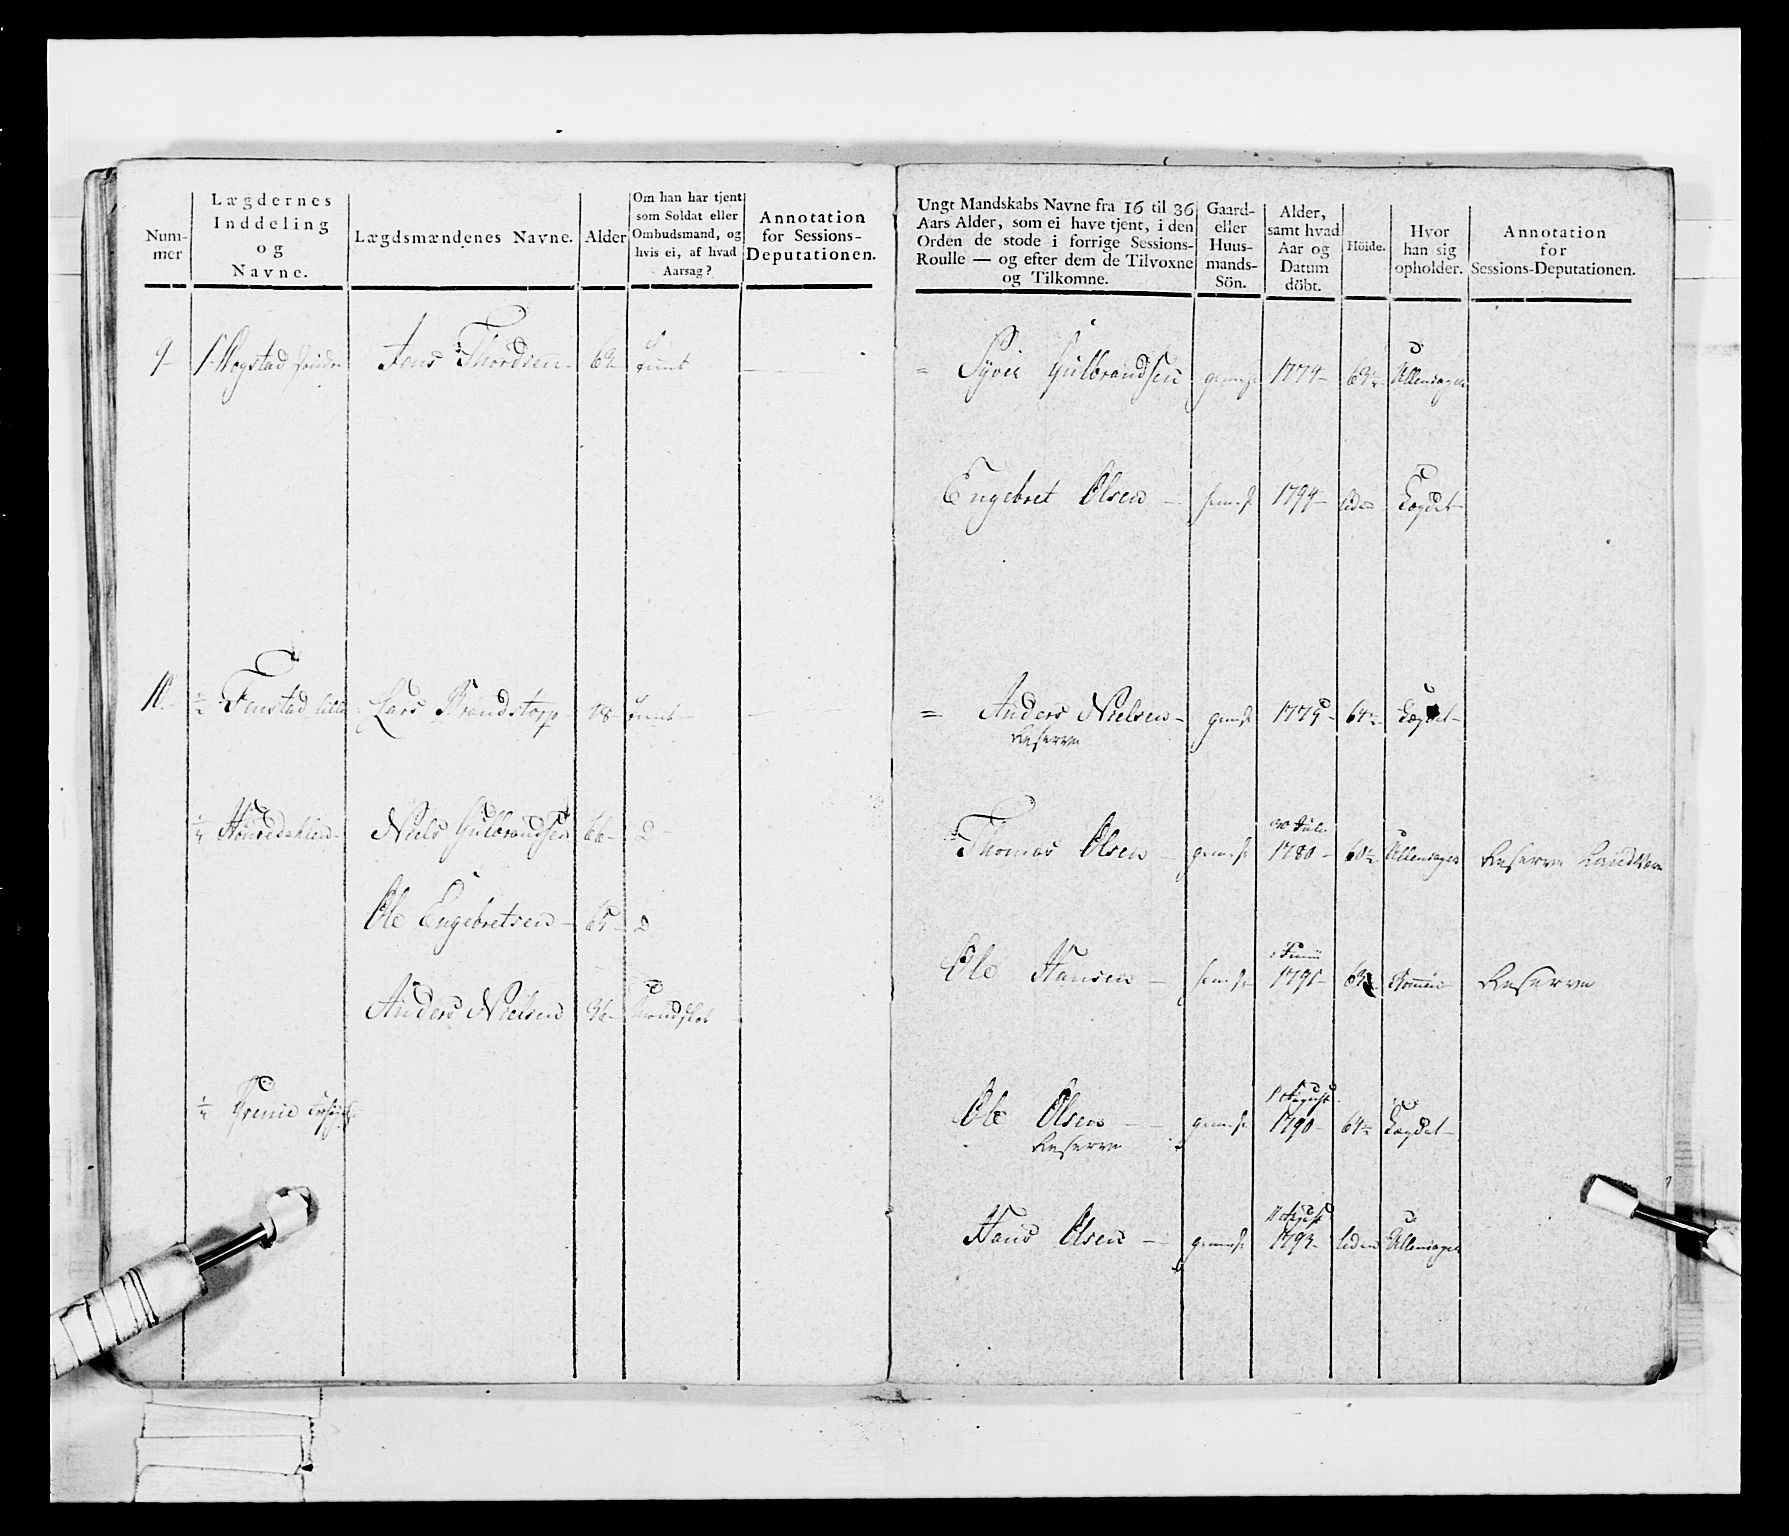 Num-
mer
Lægdernes
Inddeling
og
Navne.
Lægdsmændenes Navne.
Alder
Om han har tjent
som Soldat eller
Ombudsmand, og
hvis ei, af hvad
Aarsag?
Annotation
for Sessions-
Deputationen.
9 1 Jens Thordsen 62 tient
10 ½ Fenstad lille Lars Brandstorp tient
Niels Gulbrandsen 66 D
Ole Engebretsen 65 D
Anders Nielsen 36
¼ Grenie
Ungt Mandskabs Navne fra 16 til 36
Aars Alder, som ei have tjent, i den
Orden de stode i forrige Sessions-
Roulle — og efter dem de Tilvoxne
og Tilkomne.
Gaard-
eller
Huus-
mands-
Sön.
Alder,
samt hvad
Aar og
Datum
döbt.
Höide.
Hvor
han sig
opholder.
Annotation
for
Sessions-Deputationen.
= Syver Gulbrandsen 1774 Ullensager
Engebret Olsen — 1794 liden Lægdet
= Anders Nielsen 1775 64 Lægdet
Reserve
Thomas Olsen 1780 60 Ullensager Reserve Landværn
1 Junii
Ole Hansen — 1791 Reserve
August
Ole Olsen — 1790 64 Lægdet
Reserve
11 August
Hans Olsen — 1793 liden Ullensager